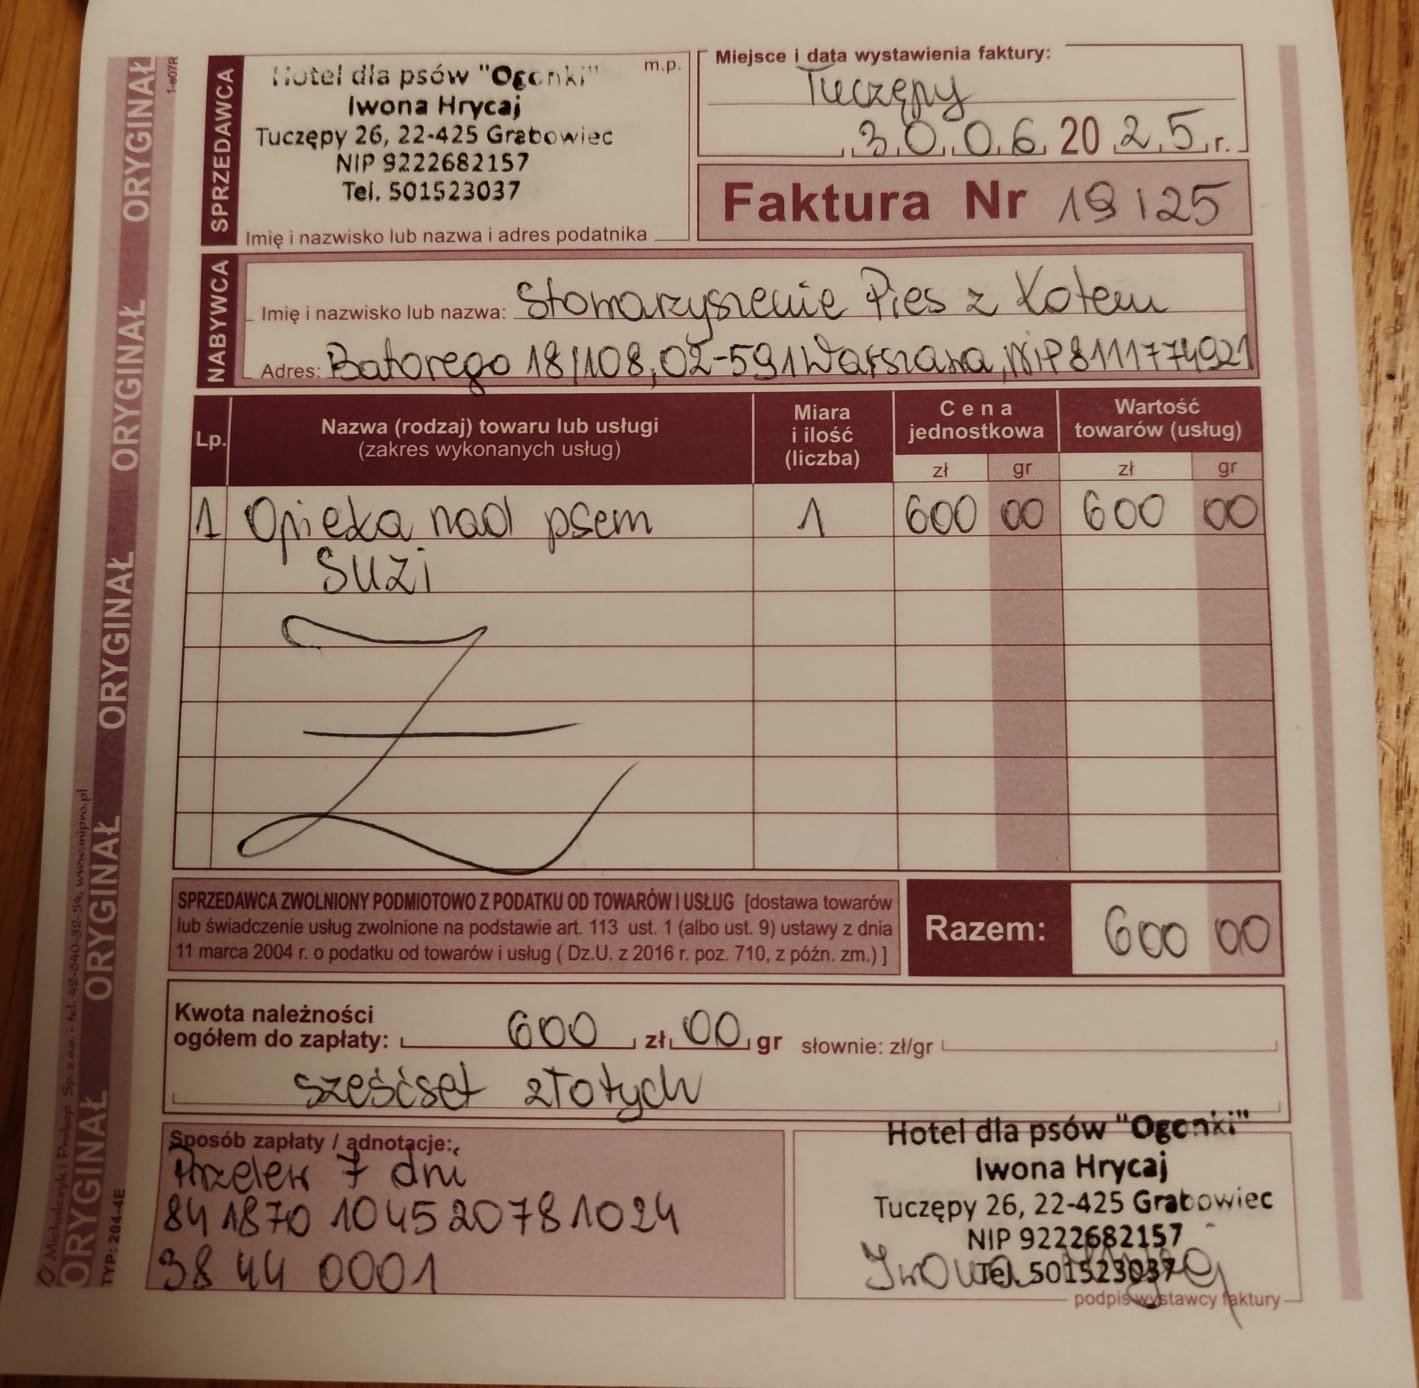 ORYGINAŁ ORYGINAŁ ORYGINAŁ ORYGINAŁ ORYGINAŁ
Michalczyk i Prokop Sp. z o.o. - tel. 42-640-32-54, www.mipro.pl
TYP: 204-4E
1-e07R
SPRZEDAWCA
Hotel dla psów "Ogonki"
m.p.
Iwona Hrycaj
Tuczępy 26, 22-425 Grabowiec
NIP 9222682157
Tel. 501523037
Imię i nazwisko lub nazwa i adres podatnika
Miejsce i data wystawienia faktury:
Tuczępy
30.06.2025 r.
Faktura Nr 19/25
NABYWCA
Imię i nazwisko lub nazwa: Stowarzyszenie Pies z Kotem
Adres: Batorego 18/108, 02-591 Warszawa, NIP 8111774921
Lp. Nazwa (rodzaj) towaru lub usługi (zakres wykonanych usług) Miara i ilość (liczba) Cena jednostkowa Wartość towarów (usług)
zł gr zł gr
1 Opieka nad psem 1 600 00 600 00
Suzi
SPRZEDAWCA ZWOLNIONY PODMIOTOWO Z PODATKU OD TOWARÓW I USŁUG [dostawa towarów
lub świadczenie usług zwolnione na podstawie art. 113 ust. 1 (albo ust. 9) ustawy z dnia
11 marca 2004 r. o podatku od towarów i usług ( Dz.U. z 2016 r. poz. 710, z późn. zm.) ]
Razem: 600 00
Kwota należności
ogółem do zapłaty: 600 zł 00 gr słownie: zł/gr
sześćset złotych
Sposób zapłaty / adnotacje:
Przelew 7 dni
84 1870 1045 2078 1024
3844 0001
Hotel dla psów "Ogonki"
Iwona Hrycaj
Tuczępy 26, 22-425 Grabowiec
NIP 9222682157
Tel. 501523037
Iwona Hrycaj
podpis wystawcy faktury